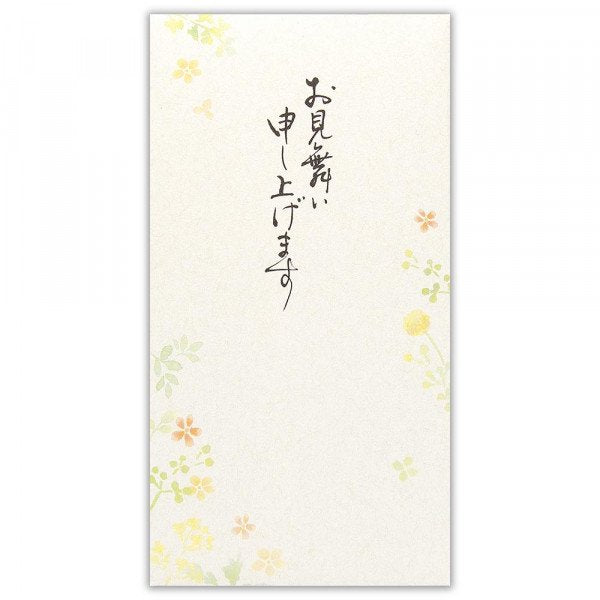 お見舞い
申し上げます